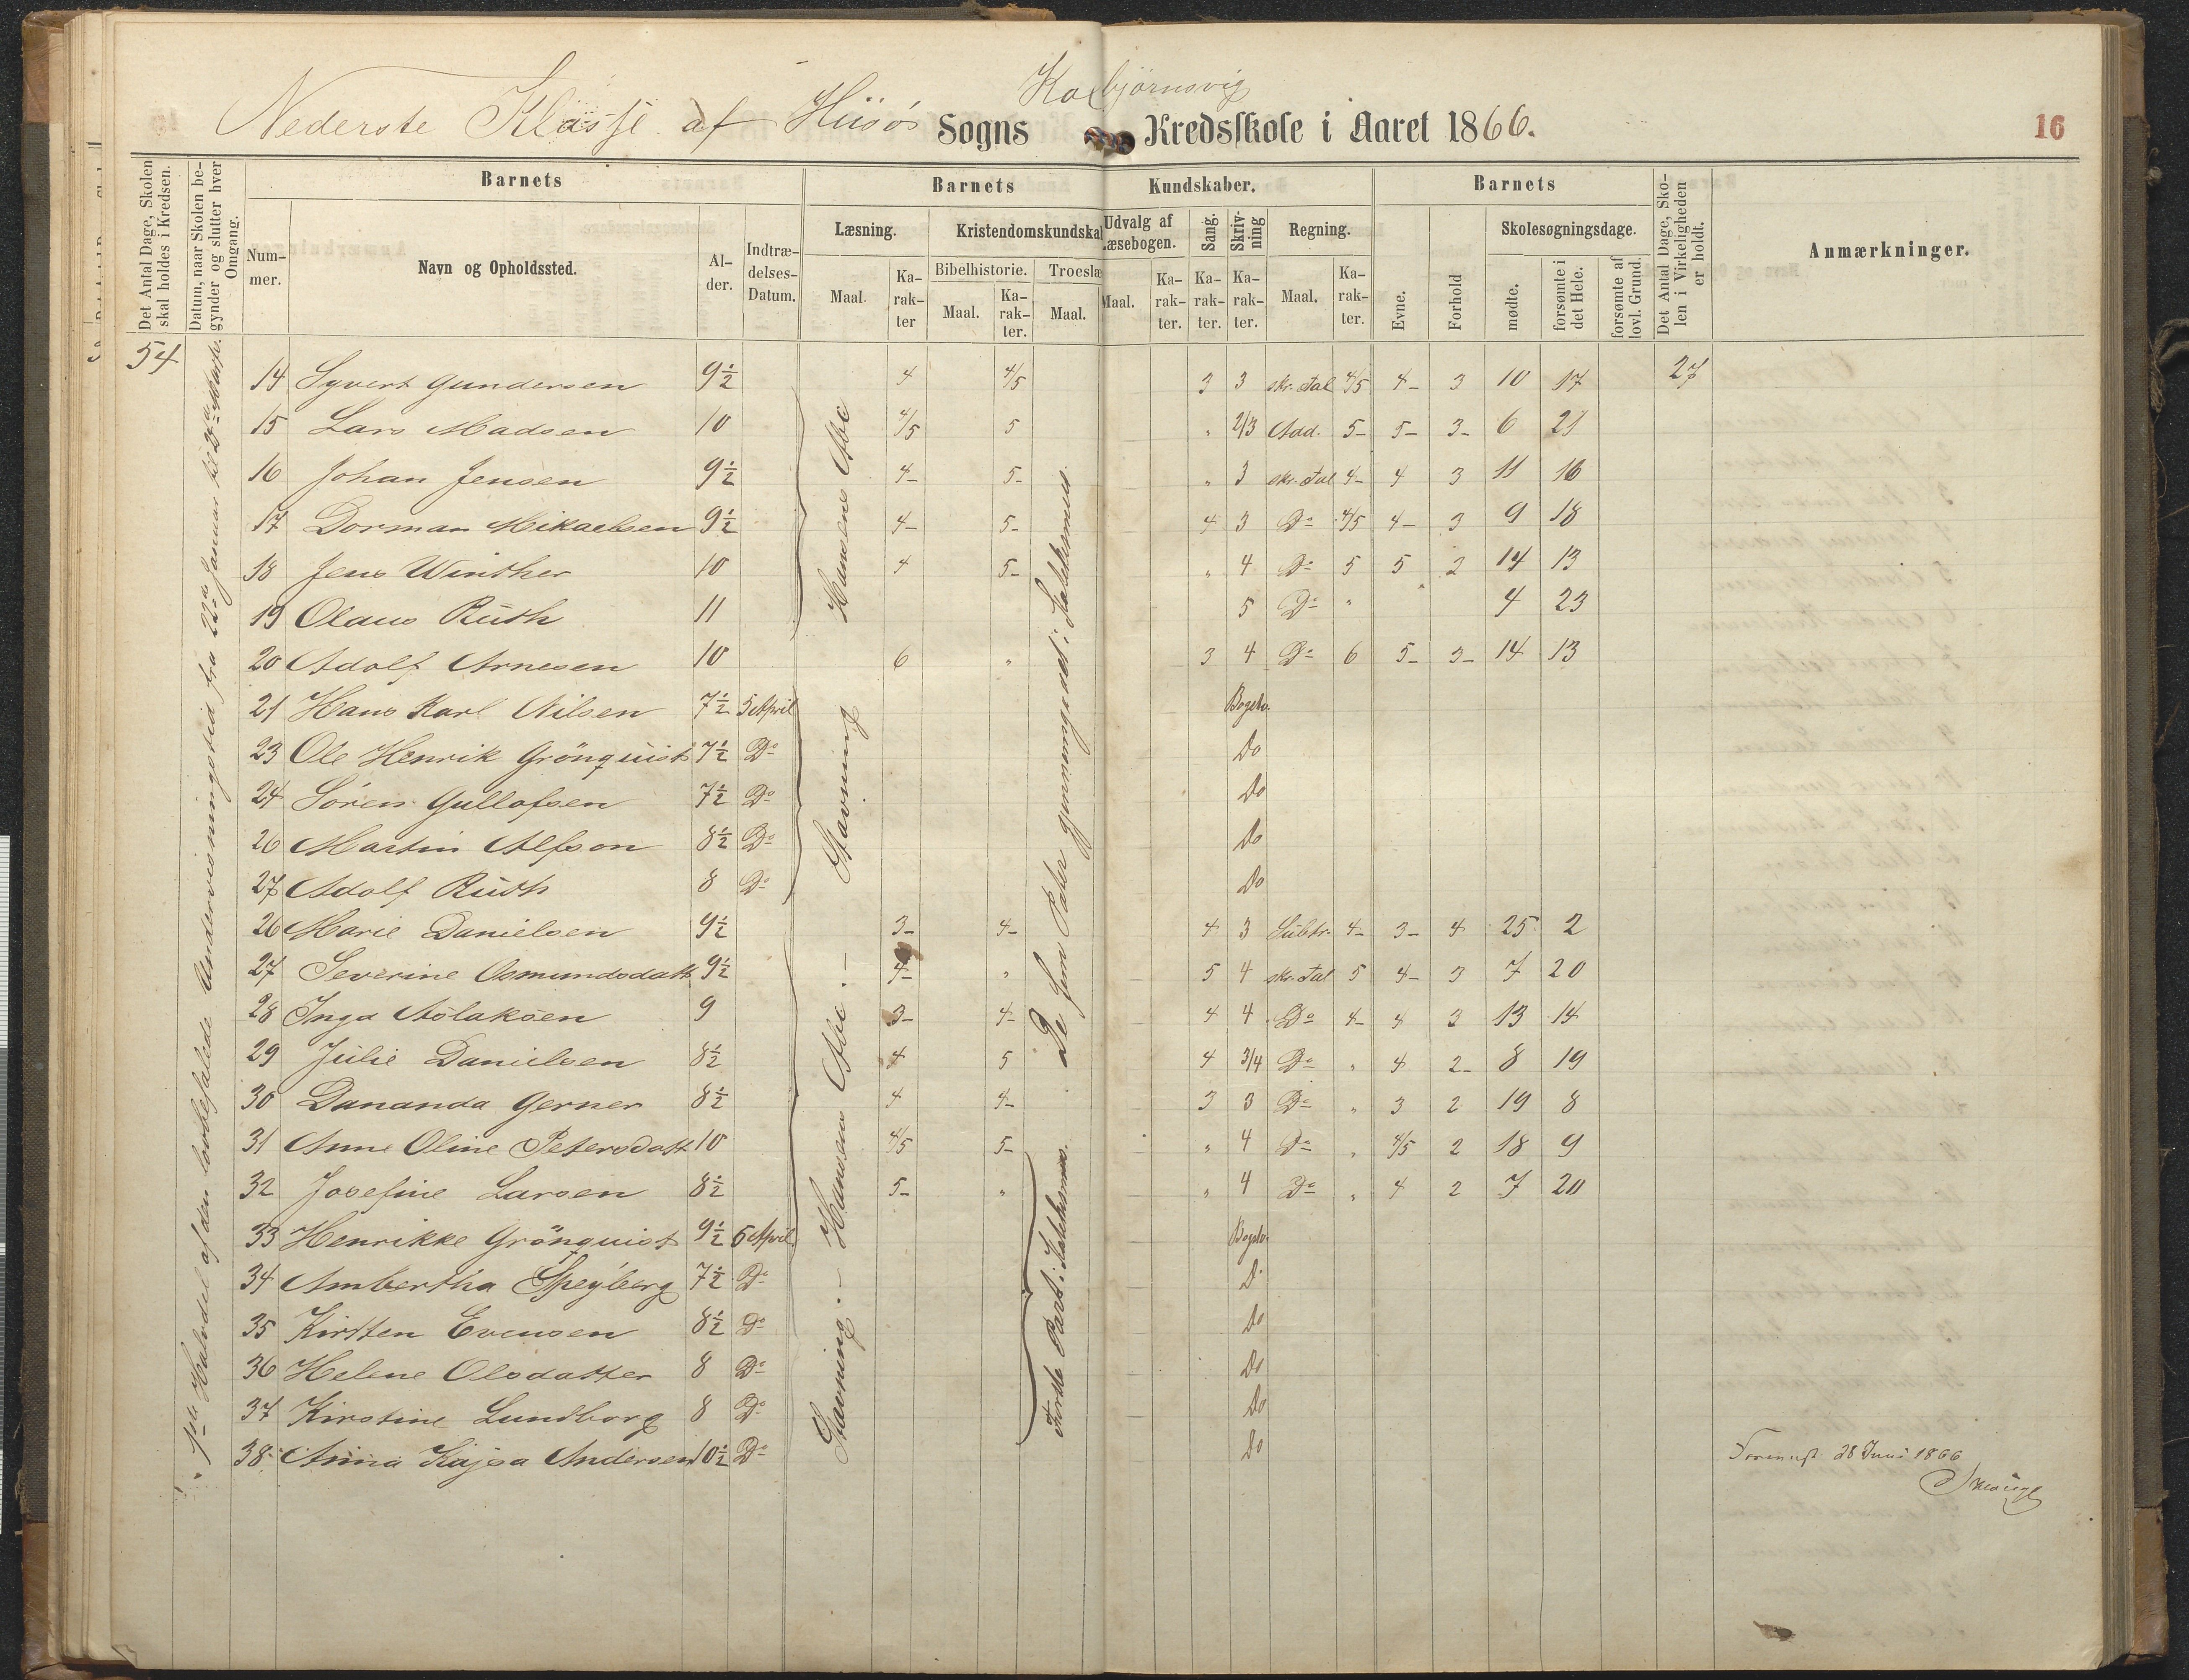 Kolbjørnsvig
Nederste Klasse af Hiisø Sogns Kredsskole i Aaret 1866.
16
Det Antal Dage, Skolen skal holdes i Kredsen.
Datum, naar Skolen begynder og slutter hver Omgang.
Barnets
Barnets
Kundskaber.
Barnets
Det Antal Dage, Skolen i Virkeligheden er holdt.
Anmærkninger.
Nummer.
Navn og Opholdssted.
Alder.
Indtrædelses-Datum.
Læsning.
Kristendomskundska
Udvalg af
Læsebogen.
Sang.
Skrivning
Regning.
Evne.
Forhold
Skolesøgningsdage.
Bibelhistorie.
Troeslæ
Maal.
Karakter
Maal.
Karakter.
Maal.
Maal.
Karakter.
Karakter.
Karakter.
Maal.
Karakter.
mødte.
forsømte i det Hele.
forsømte af lovl. Grund.
54
1ste Halvdel af den lovbefalede Undervisningstid fra 22de Januar til 23de Marts.
14 Syvert Gundersen 9½ 4 4/5 3 3 skr. Tal 4/5 4- 3 10 17 27
15 Lars Madsen 10 4/5 5 " 2/3 Add. 5- 5- 3- 6 21
16 Johan Jensen 9½ 4- 5- " 3 skr. Tal 4- 4 3 11 16
17 Dorman Mikaelsen 9½ 4- 5- 4 3 Do 4/5 4- 3 9 18
18 Jens Winther 10 4 5- " 4 Do 5 5 2 14 13
19 Olaus Ruth 11 5 Do " 4 23
20 Adolf Arnesen 10 6 " 3 4 Do 6 5- 3- 14 13
21 Hans Karl Nilsen 7½ 5 April Bogstv.
23 Ole Henrik Grönquist 7½ Do Do
24 Sören Gullofsen 7½ Do Do
26 Martin Alfson 8½ Do Do
27 Adolf Ruth 8 Do Do
26 Marie Danielsen 9½ 3- 4- 4 3 Subtr. 4- 3- 4 25 2
27 Severine Osmundsdatt 9½ 4- " 5 4 skr. Tal 5 4- 3 7 20
28 Inga Aslaksen 9 3- 4- 4 4 Do 4- 4 3 13 14
29 Julie Danielsen 8½ 4 5 4 3/4 Do " 4 2- 8 19
30 Dananda Gerner 8½ 4 4- 3 3 Do " 3 2 19 8
31 Anne Oline Petersdatt 10 4/5 5- " 4 Do " 4/5 2 18 9
32 Josefine Larsen 8½ 5- " " 4 Do " 4 2 7 20
33 Henrikke Grönquist 9½ 5 April Bogstv.
34 Ambertha Speyberg 7½ Do Do
35 Kirsten Evensen 8½ Do Do
36 Helene Olsdatter 8 Do Do
37 Kirstine Lundborg 8 Do Do
38 Anna Kajsa Andersen 10½ Do Do
Hansens Abc
Stavning
Stavning. - Hansens Abc. -
De fem Parter gjennemgaaet i Katekismus.
Første Part i Katekismus.
Foreviist 28 Juni 1866